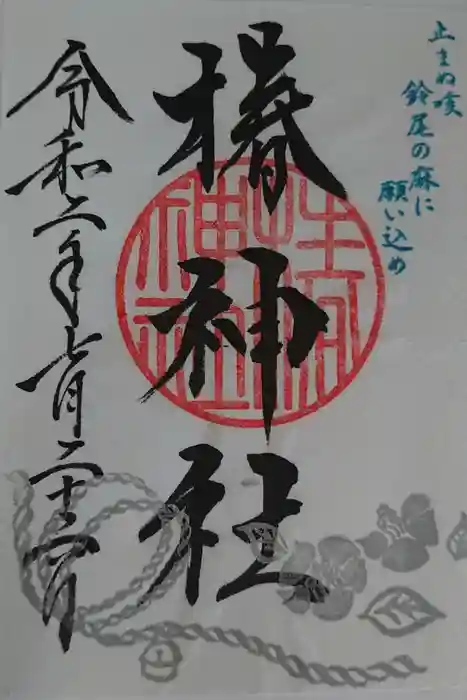 止まぬ咳
鈴尾の麻に
願い込め
椿神社
令和二年七月二十日